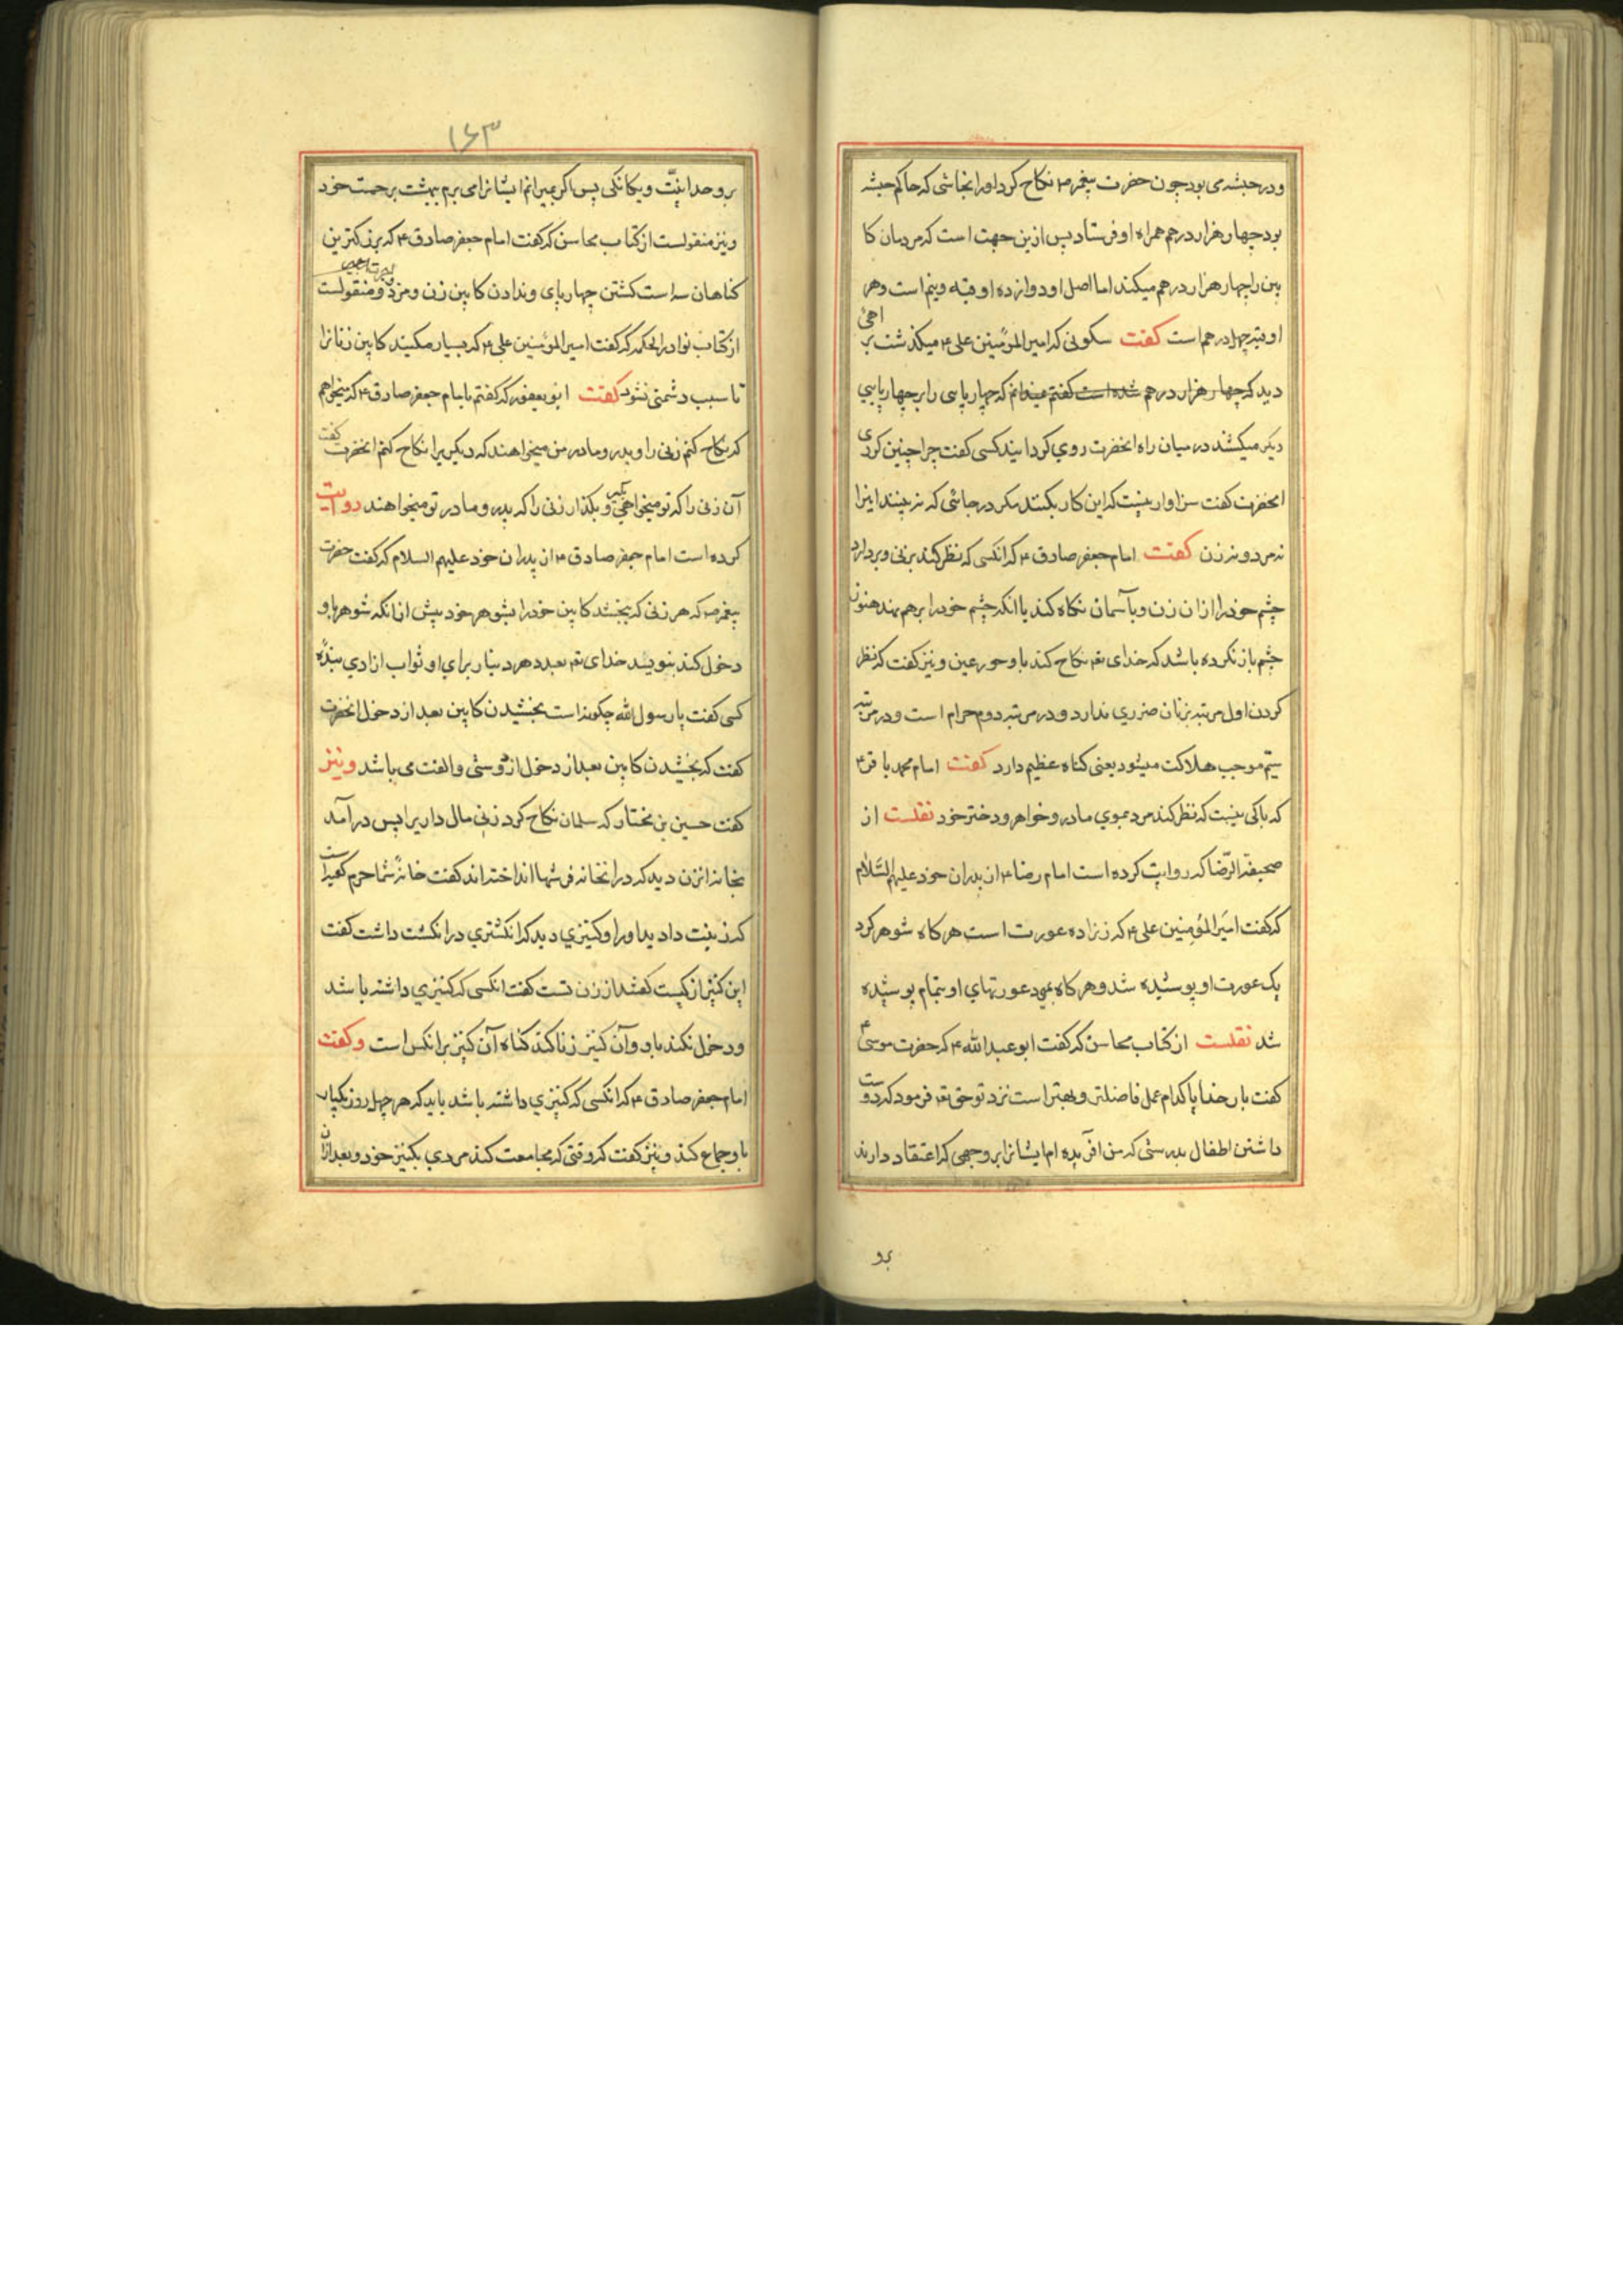 ودر حبشه می بود چون حضرت پیغمر ص نکاح کرد اورا نجاشی که حاکم حبشه
بود چهار هزار درهم همراه او فرستاد پس ازین جهت است که مردمان کا
بین را چهار هزار درهم میکنند اما اصل او دوازده اوقیه ونیم است وهر
اوقیه چهل درهم است کفت سکونی که امیر المؤمنین علی ع میکذشت بر
دید که چهار هزار درهم شده است کفتم نمیدانم که چهار پایی را بر چهار پایی
دیگر میکشند در میان راه انحضرت روی کردانید کسی کفت چرا چنین کردی
انحضرت کفت سزاوار نیست که این کار بکنند مکر در جائی که نه بینند اینرا
نه مرد و نه زن کفت امام جعفر صادق ع که انکسی که نظر کند بزنی و بردارد
چشم خودرا ازان زن وبآسمان نکاه کند یا انکه چشم خودرا برهم نهد هنوز
چشم باز نکرده باشد که خدای تع نکاح کند باو حور عین ونیز کفت که نظر
کردن اول مرتبه بزنان ضرری ندارد و در مرتبه دوم حرام است ودر مرتبه
سیم موجب هلاکت میشود یعنی کناه عظیم دارد کفت امام محمد باقر ع
که باکی نیست که نظر کند مرد بموی مادر و خواهر و دختر خود نقلست از
صحیفة الرّضا که روایت کرده است امام رضا ع از پدران خود علیهم السّلام
که کفت امیر المؤمنین علی ع که زنرا ده عورت است هر کاه شوهر کرد
یک عورت او پوشیده شد و هر کاه بمیرد عورتهای او بتمام پوشیده
شد نقلست از کتاب محاسن که کفت ابو عبد الله ع که حضرت موسی ع
کفت بار خدایا کدام عمل فاضلتر و بهتر است نزد تو حق تع فرمود که دوست
داشتن اطفال بدرستی که من افریده ام ایشانرا بر وجهی که اعتقاد دارند
بو
۱۶۳
بر وحدانیّت ویکانکی پس اکر بمیرانم ایشانرا می برم ببهشت برحمت خود
ونیز منقولست از کتاب محاسن که کفت امام جعفر صادق ع که بزرکترین
کناهان سه است کشتن چهار پای وندادن کابین زن ومزد ومنقولست
از کتاب نوادر الحکمه که کفت امیر المؤمنین علی ع که بسیار مکنید کابین زنانرا
تا سبب دشمنی نشود کفت ابو یعفور که کفتم بامام جعفر صادق ع که میخواهم
که نکاح کنم زنی را و پدر و مادر من میخواهند که دیکریرا نکاح کنم انحضرت کفت
آن زنی را که تو میخواهی بکیر و بکذار زنی را که پدر و مادر تو میخواهند روایت
کرده است امام جعفر صادق ع از پدران خود علیهم السلام که کفت حضرت
پیغمر ص که هر زنی که ببخشد کابین خودرا بشوهر خود پیش از انکه شوهر باو
دخول کند بنویسد خدای تع بعدد هر دینار برای او ثواب ازادی بندهٔ
کسی کفت یا رسول الله چکونه است بخشیدن کابین بعد از دخول انحضرت
کفت که بخشیدن کابین بعد از دخول از دوستی والفت می باشد ونیز
کفت حسین بن مختار که سلمان نکاح کرد زنی مال داریرا پس درآمد
بخانه انزن دید که در انخانه فرشها انداخته اند کفت خانهٔ شما حرم کعبه است
که زینت داده اید اورا وکنیزی دید که انکشتری در انکشت داشت کفت
این کنیز از کیست کفتند از زن تست کفت انکسی که کنیزی داشته باشد
ودخول نکند باو وآن کنیز زنا کند کناه آن کنیز بر انکس است وکفت
امام جعفر صادق ع که انکسی که کنیزی داشته باشد باید که هر چهل روز یکبار
باو جماع کند ونیز کفت که وقتی که مجامعت کند مردی بکنیز خود وبعد ازان